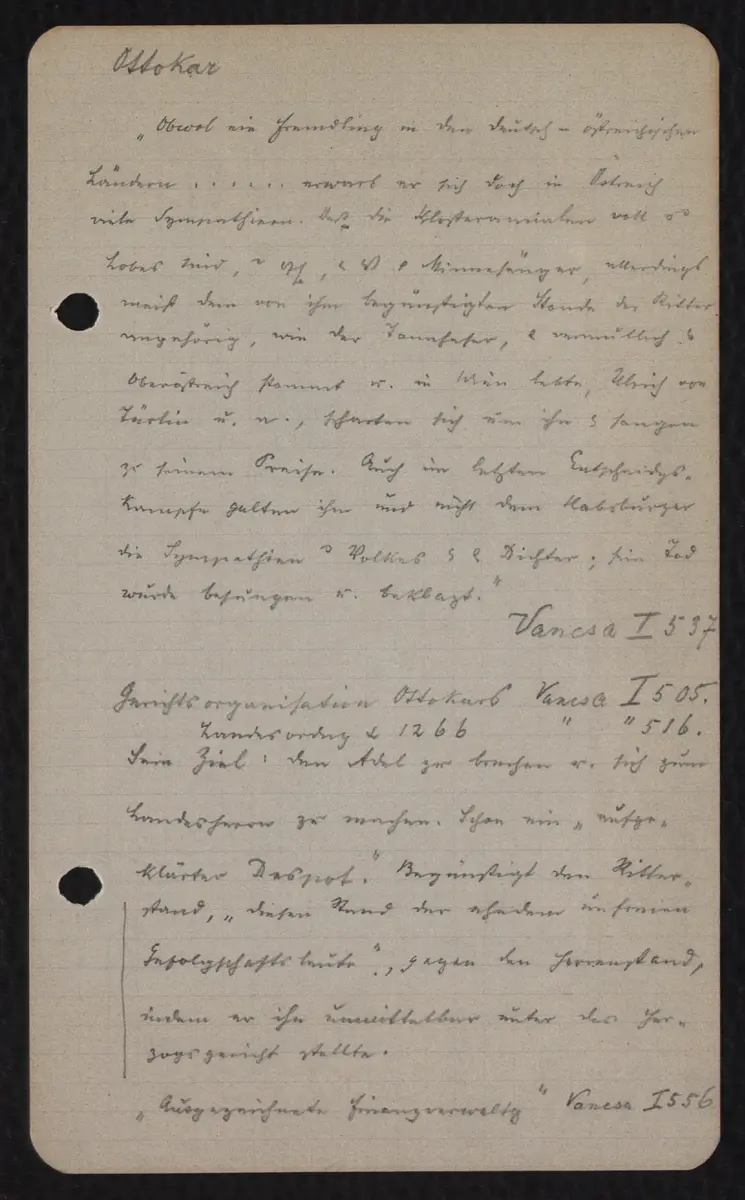 Ottokar
„Obwol ein Fremdling in den deutsch-östreichischen
Ländern ...... erwarb er sich doch in Östreich
viele Sympathieen. Daß die Klosterannalen voll
Lobes sind, Minnesänger, allerdings
meist dem von ihm begünstigten Stande der Ritter
angehörig, wie der Tannhuser, vermutlich
Oberöstreich stammt u. in Wien lebte, Ulrich von
Türlin u. a., scharten sich um ihn sangen
zu seinem Preise. Auch im letzten Entscheidgs-
kampfe galten ihm und nicht dem Habsburger
die Sympathien Volkes Dichter; sein Tod
wurde besungen u. beklagt."
Vancsa I 537
Gerichtsorganisation Ottokars Vancsa I 505.
Landesordng 1266 " " 516.
Sein Ziel: den Adel zu brechen u. sich zum
Landesherrn zu machen. Schon ein „aufge-
klärter Despot." Begünstigt den Ritter-
stand, „diesen Stand der ehedem unfreien
Gefolgschaftsleute", gegen den Herrenstand,
indem er ihn unmittelbar unter das Her-
zogsgericht stellte.
„Ausgezeichnete Finanzverwaltg" Vancsa I 556